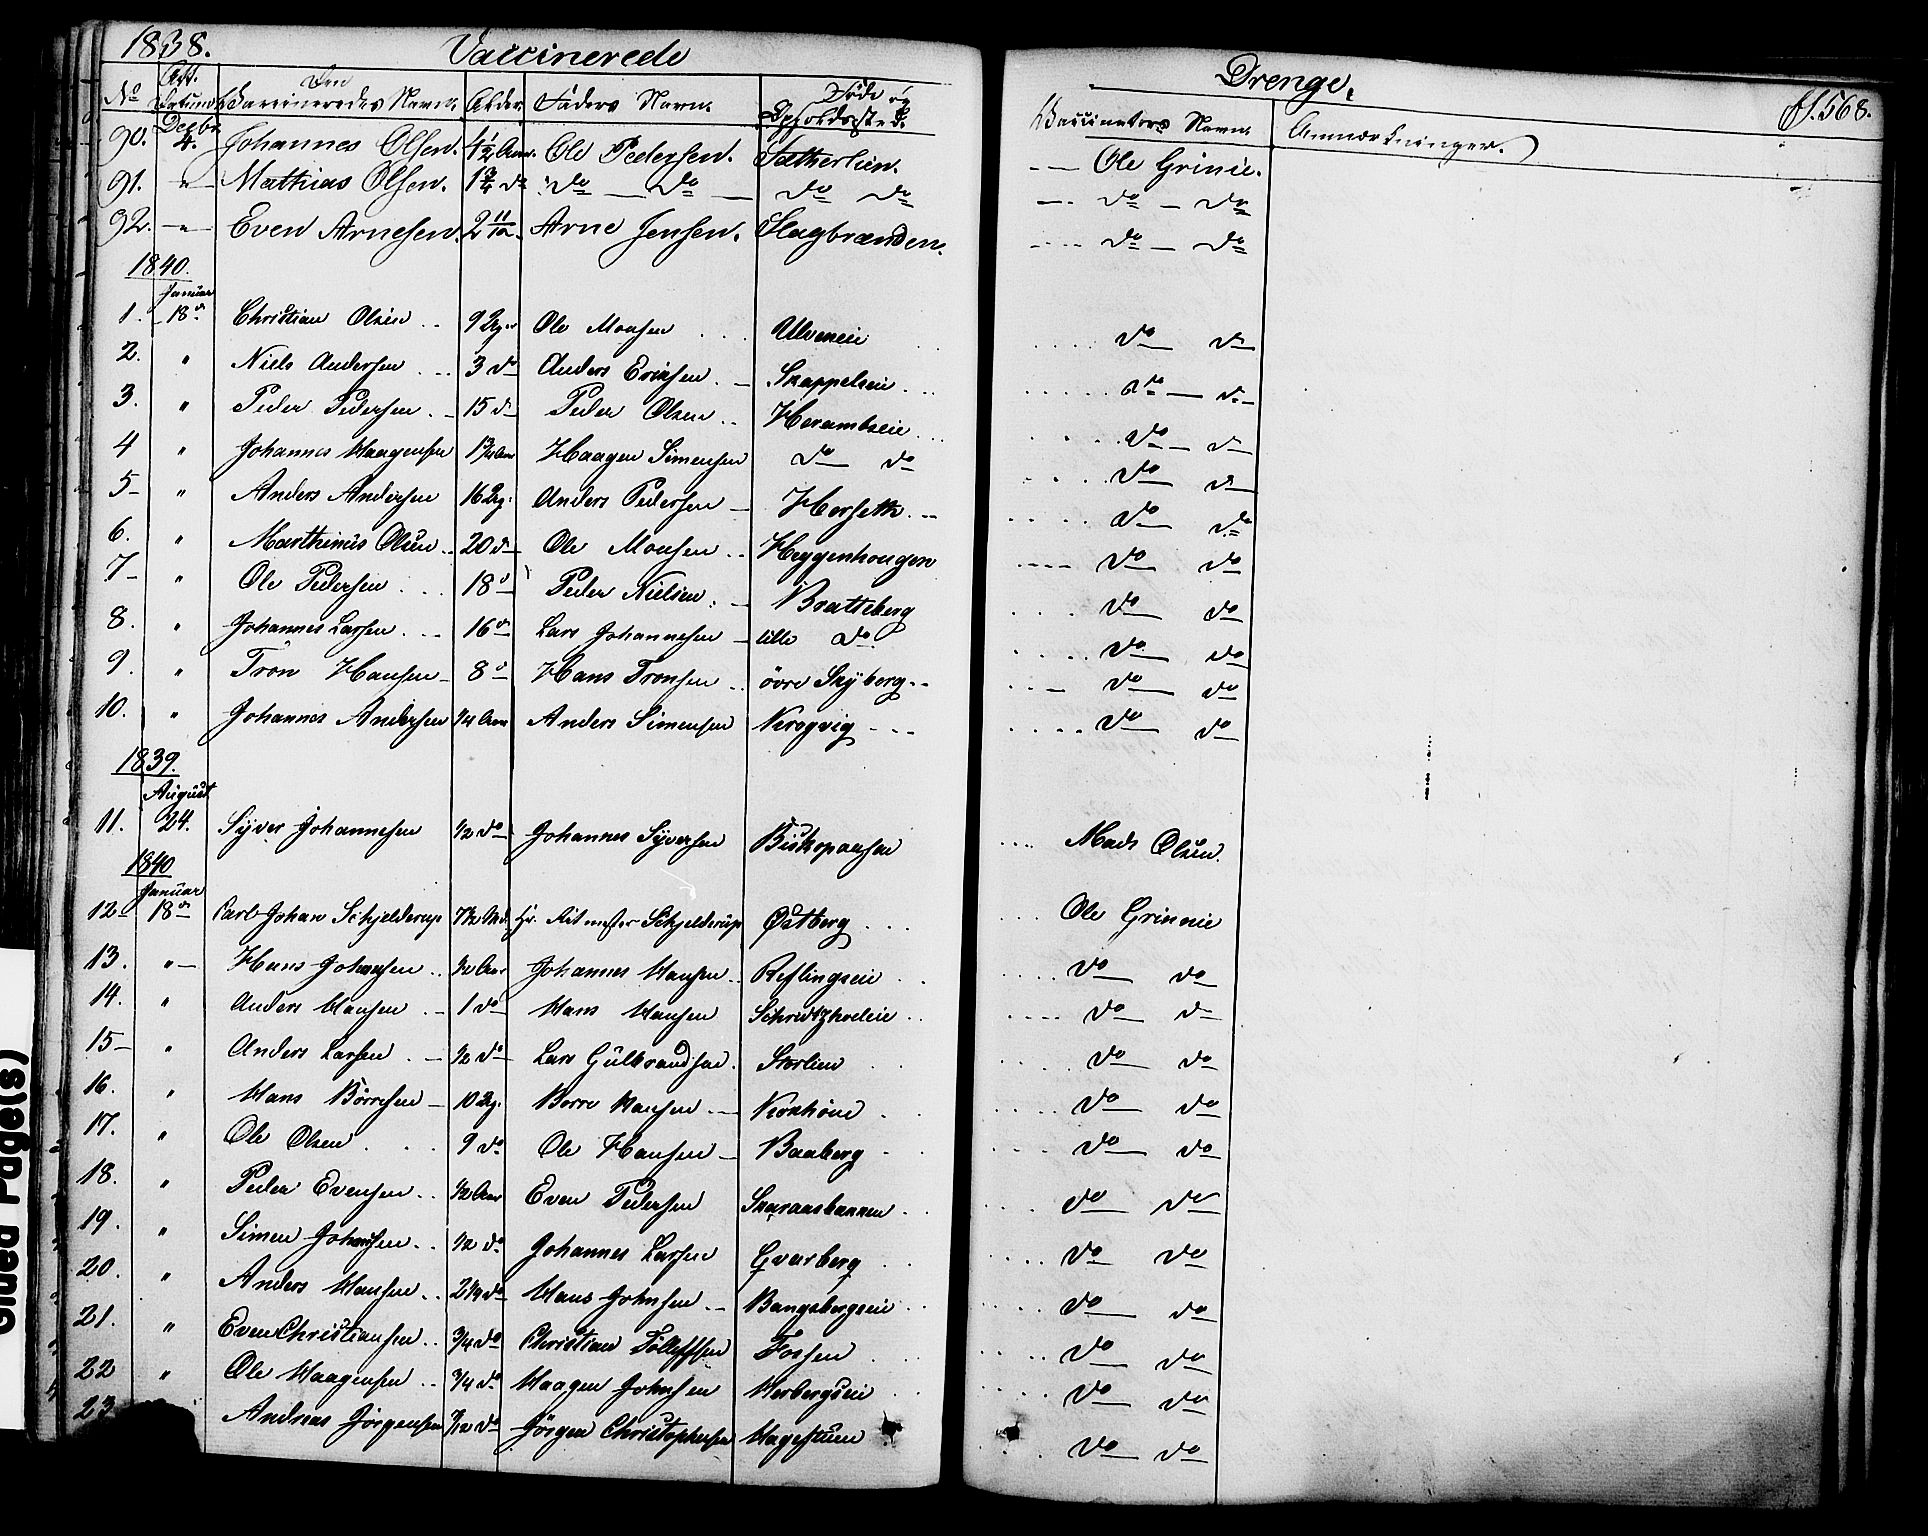 1838. Vaccinerede Drenge. fl. 568.
No Att. Datum Den Vaccineredes Navn. Alder. Faders Navn. Føde og Opholdssted. Vaccinators Navn. Anmærkninger.
90. Decbr 4. Johannes Olsen. 4 1/2 Aar. Ole Pedersen. Sætherlien. — Ole Grinie.
91. -"- Mathias Olsen. 1 3/4 do do — do — do do — do — do
92. -"- Even Arnesen. 2 11/12. Arne Jensen. Slagbrænden. do — do
1840.
Januar
1. 18d Christian Olsen 9 Ug. Ole Monsen Ulveneie do do
2. " Niels Andersen 3 do Anders Ericksen Skappelseie do — do
3. " Peder Pedersen 15 d Peder Olsen Heramtseie do — do
4 " Johannes Haagensen Aar Haagen Simensen do do do do
5 " Anders Andersen 16 Ug. Anders Pedersen Horseth do do
6. " Marthinus Olsen 20 d Ole Monsen Heggenhougen do do
7 " Ole Pedersen 18 d Peder Nielsen Bratteberg do do
8. " Johannes Larsen 16 d Lars Johannesen lille do do do
9. " Tron Hansen 8 d Hans Tronsen övre Skyberg do do
10. " Johannes Andersen 1/4 Aar Anders Simensen do do
1839.
August
11. 24. Syver Johannesen 1/2 do Johannes Syversen Biskopaasen Mads Olsen.
1840
Januar
12. 18d Carl Johan Schjelderup 7 1/2 Md. Hr. Ritmester Schjelderup Østberg Ole Grinnie
13. "— Hans Johansen 1/2 Aar Johannes Hansen Reflingseie do do
14. " Anders Hansen 1 do Hans Hansen do do
15 " Anders Larsen 1/2 do Lars Gulbrandsen. Storlien do do
16. " Hans Børresen 10 Ug. Borre Hansen do do
17. " Ole Olsen 9 do Ole Hansen Baaberg do do
18. " Peder Evensen 1/2 Aar Even Pedersen Skaraasbakken do do
19. " Simen Johansen 1/2 do Johannes Larsen Qvarberg do do
20. " Anders Hansen do Hans Johnsen Bangsbergseie do do
21. " Even Christiansen 3/4 do Christian Tolleffsen Fossen do do
22 " Ole Haagensen 3/4 do Haagen Johnsen Herbergseie do do
23 Andreas Jörgensen 7/12 do Jörgen Christophersen Hagestuen do do
Glued Page(s)